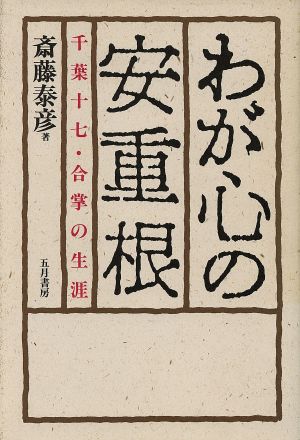 わが心の
安重根
千葉十七・合掌の生涯
斎藤泰彦著
五月書房